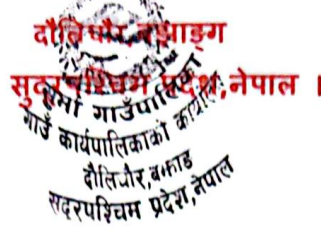 दौलिचौर,बझाङ्ग
सुदूरपश्चिम प्रदेश,नेपाल ।
शर्मा गाउँपालिका
गाउँ कार्यपालिकाको कार्यालय
दौलिचौर,बझाङ
सुदूरपश्चिम प्रदेश,नेपाल